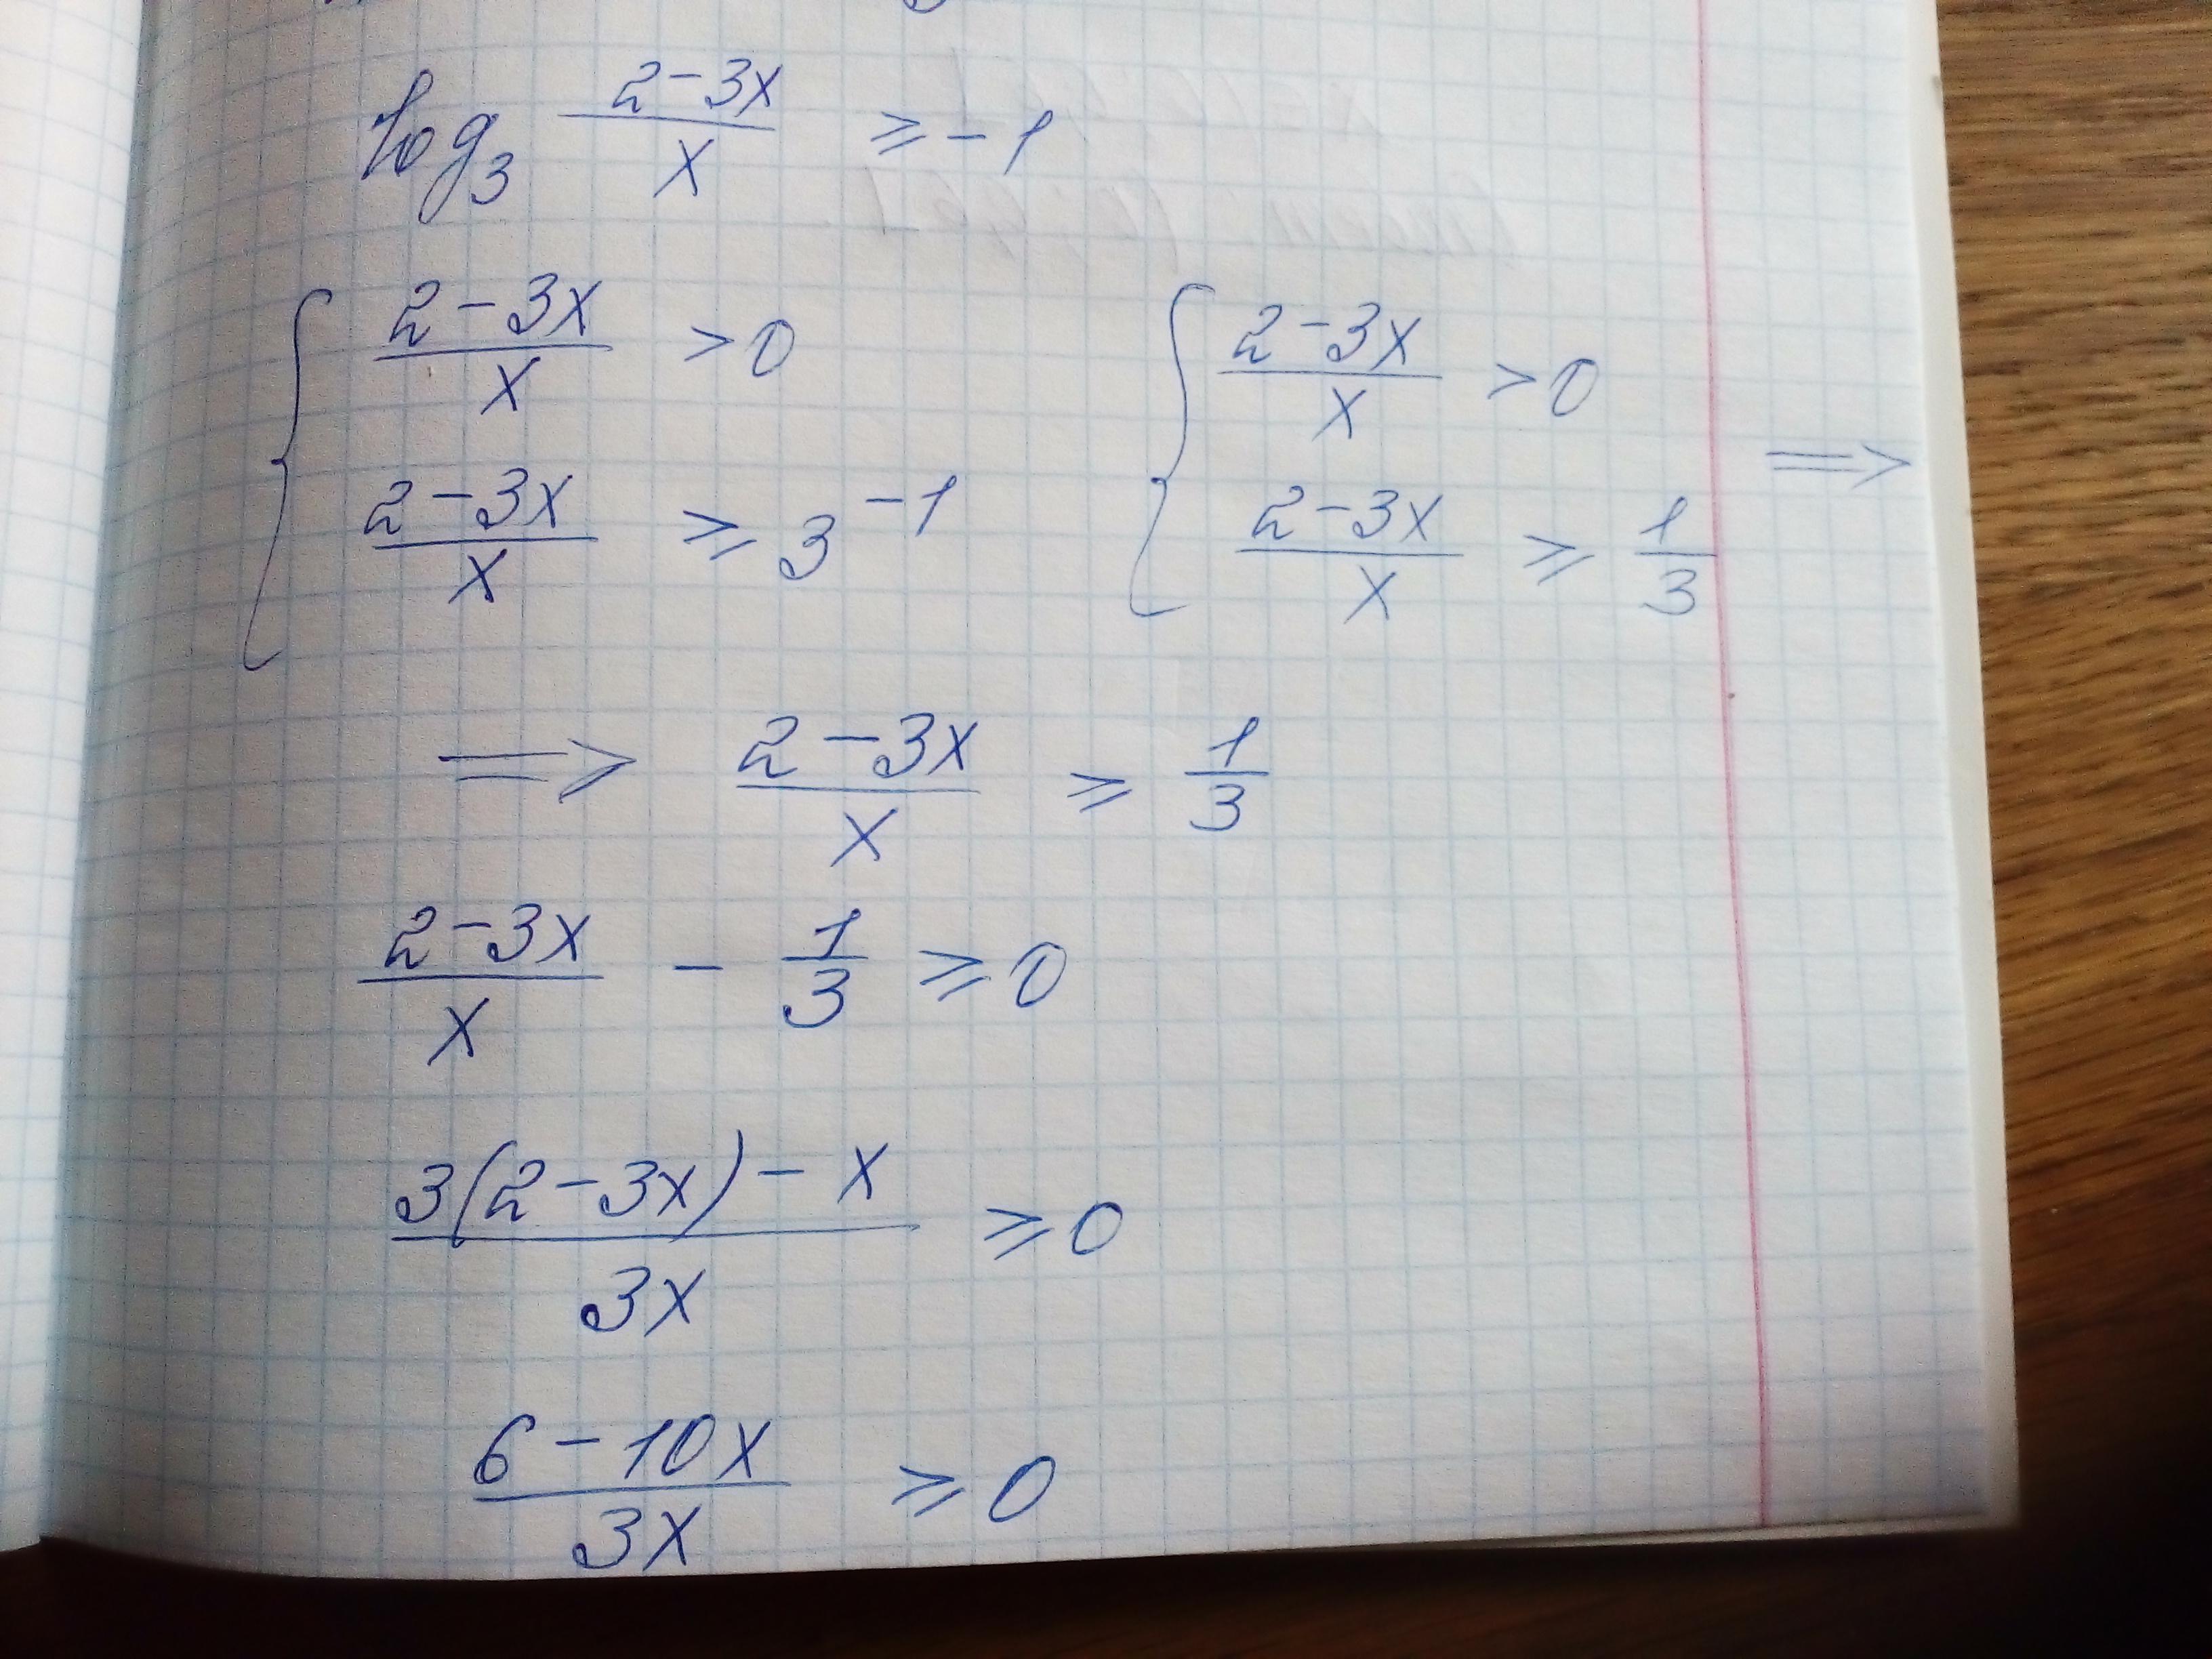 log₃ (2-3x)/x ≥ -1
{ (2-3x)/x > 0 { (2-3x)/x > 0
(2-3x)/x ≥ 3⁻¹ (2-3x)/x ≥ 1/3 ⟹
⟹ (2-3x)/x ≥ 1/3
(2-3x)/x - 1/3 ≥ 0
(3(2-3x)-x)/3x ≥ 0
(6-10x)/3x ≥ 0